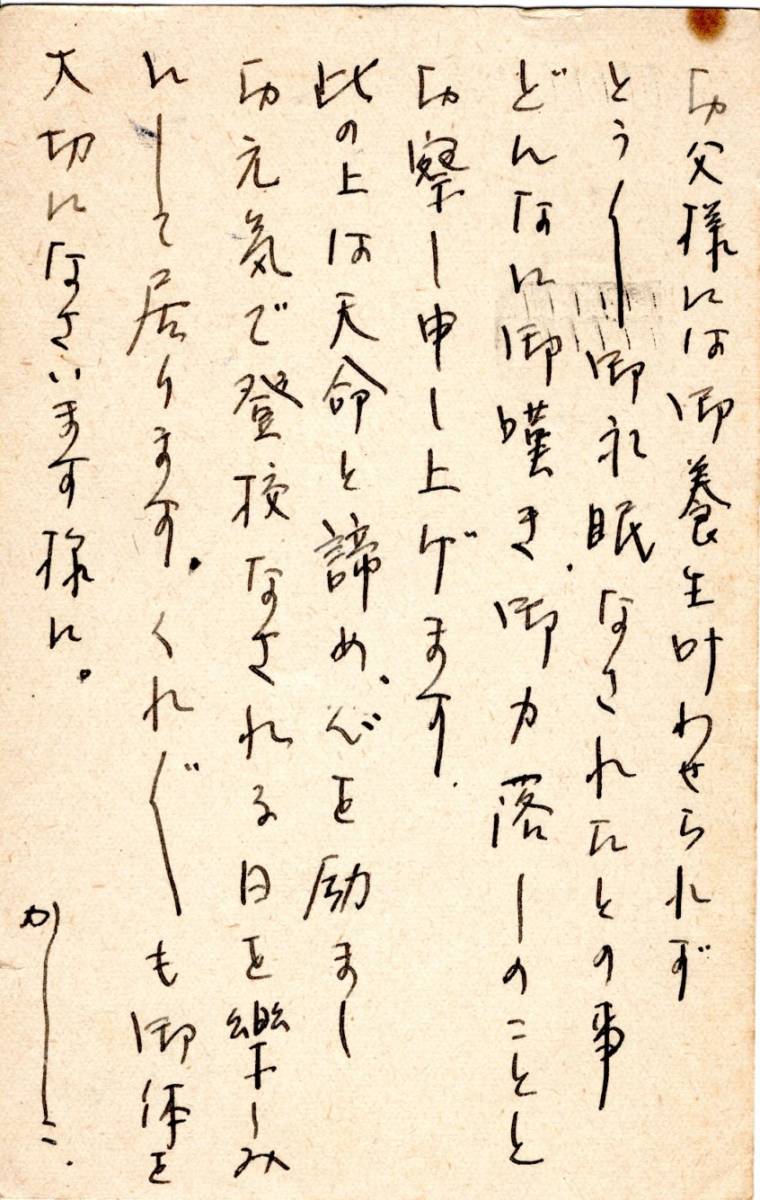 御父様には御養生叶わせられず
とう〱御永眠なされたとの事
どんなに御嘆き、御力落しのことと
御察し申し上げます。
此の上は天命と諦め、心を励まし
御元気で登校なされる日を樂しみ
にして居ります。くれ〲も御体を
大切になさいます様に。
かしこ。